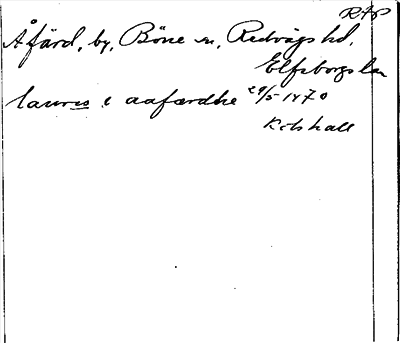 RAP
Åfärd, by, Böne sn, Redvägs hd,
Elfsborgs län
laurus i aafærdhe 29/5 1470